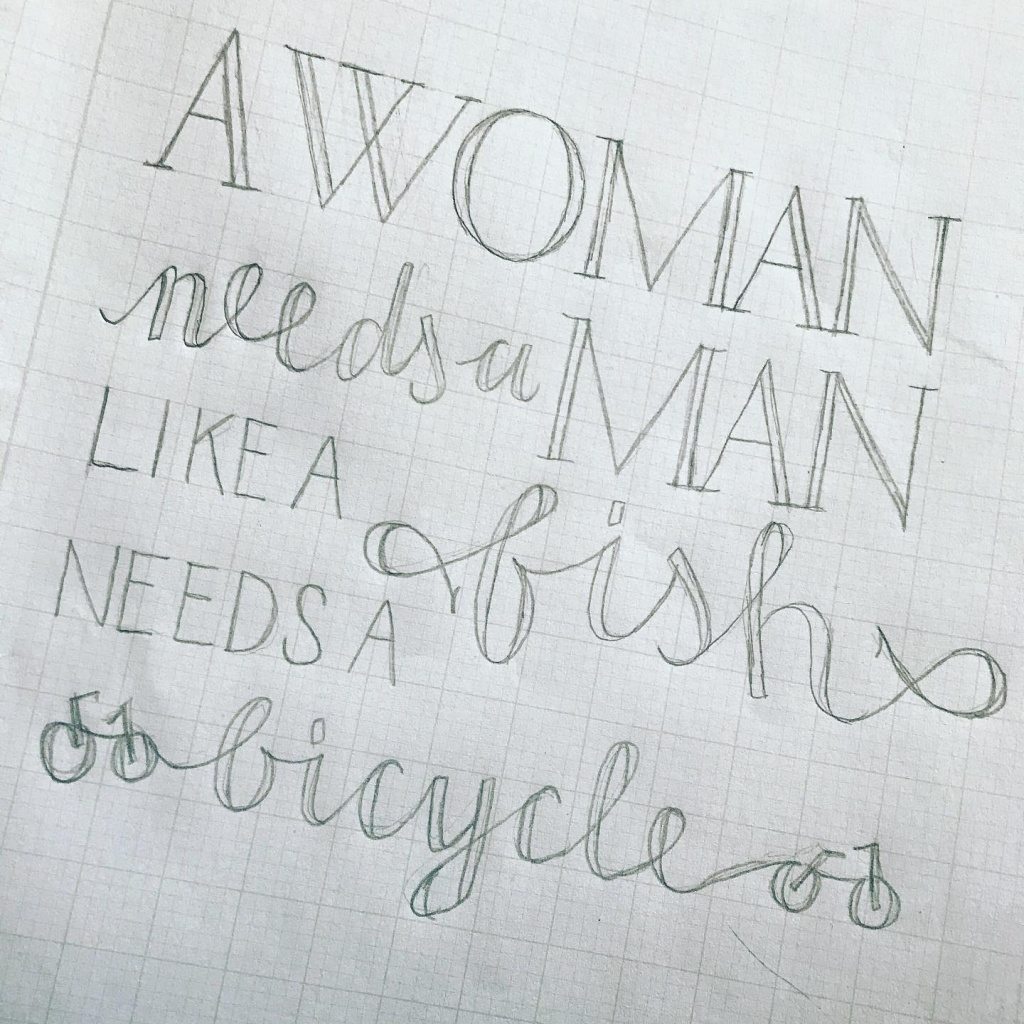 A WOMAN
needs a MAN
LIKE A fish
NEEDS A
bicycle